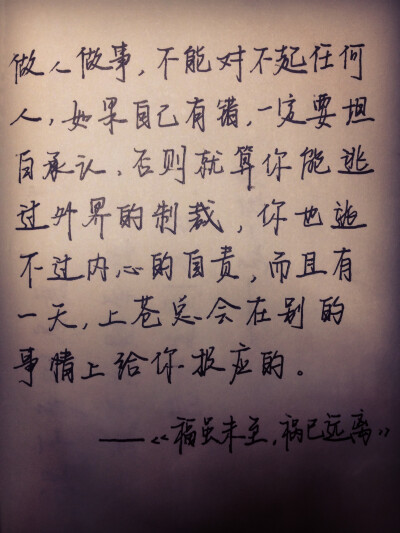 做人做事，不能对不起任何
人，如果自己有错，一定要坦
白承认，否则就算你能逃
过外界的制裁，你也逃
不过内心的自责，而且有
一天，上苍总会在别的
事情上给你报应的。
——《福虽未至，祸已远离》